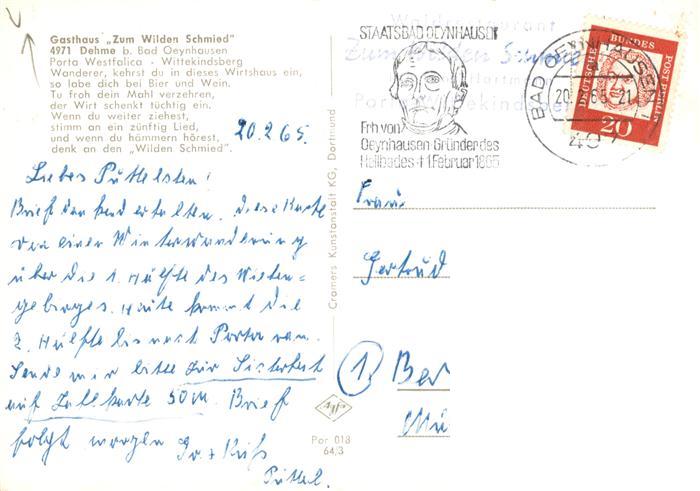 Gasthaus „Zum Wilden Schmied"
4971 Dehme b. Bad Oeynhausen
Porta Westfalica - Wittekindsberg
Wanderer, kehrst du in dieses Wirtshaus ein,
so labe dich bei Bier und Wein.
Tu froh dein Mahl verzehren,
der Wirt schenkt tüchtig ein.
Wenn du weiter ziehest,
stimm an ein zünftig Lied,
und wenn du hämmern hörest,
denk an den „Wilden Schmied".
20.2.65.
Liebes
Brief dankend erhalten. Diese Karte
von einer Winterwanderung
über die 1. Hälfte des Wiehen=
gebirges. Heute kommt die
2. Hälfte bis nach Porta ran.
Sende mir bitte zur Sicherheit
auf Zahlkarte 50 M. Brief
folgt morgen Gr. + Kuß
Püttel.
Cramers Kunstanstalt KG, Dortmund
Agfa
Por 018
64/3
STAATSBAD OEYNHAUSEN
Frh von
Oeynhausen · Gründer des
Heilbades + 1. Februar 1865
Waldrestaurant
Zum Wilden Schmied
Porta Wittekindsberg
BAD OEYNHAUSEN
497
DEUTSCHE BUNDESPOST BERLIN
20
Frau
Gertrud
① Ber